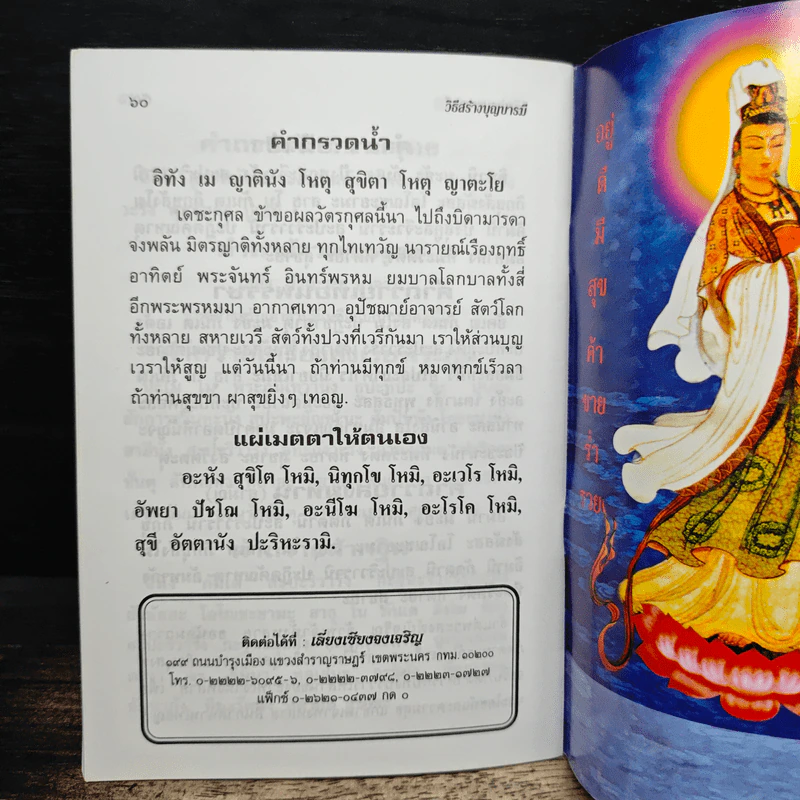 ๖๐
วิธีสร้างบุญบารมี
คำกรวดน้ำ
อิทัง เม ญาตินัง โหตุ สุขิตา โหตุ ญาตะโย
เดชะกุศล ข้าขอผลวัตรกุศลนี้นา ไปถึงบิดามารดา
จงพลัน มิตรญาติทั้งหลาย ทุกไทเทวัญ นารายณ์เรืองฤทธิ์
อาทิตย์ พระจันทร์ อินทร์พรหม ยมบาลโลกบาลทั้งสี่
อีกพระพรหมมา อากาศเทวา อุปัชฌาย์อาจารย์ สัตว์โลก
ทั้งหลาย สหายเวรี สัตว์ทั้งปวงที่เวรีกันมา เราให้ส่วนบุญ
เวราให้สูญ แต่วันนี้นา ถ้าท่านมีทุกข์ หมดทุกข์เร็วลา
ถ้าท่านสุขขา ผาสุขยิ่งๆ เทอญ.
แผ่เมตตาให้ตนเอง
อะหัง สุขิโต โหมิ, นิทุกโข โหมิ, อะเวโร โหมิ,
อัพยา ปัชโฌ โหมิ, อะนีโฆ โหมิ, อะโรโค โหมิ,
สุขี อัตตานัง ปะริหะรามิ.
ติดต่อได้ที่ : เลี่ยงเซียงจงเจริญ
๑๙๙ ถนนบำรุงเมือง แขวงสำราญราษฎร์ เขตพระนคร กทม.๑๐๒๐๐
โทร. ๐-๒๒๒๒-๖๐๙๕-๖, ๐-๒๒๒๒-๓๗๙๘, ๐-๒๒๒๓-๑๗๒๗
แฟ็กซ์ ๐-๒๖๒๑-๐๔๓๗ กด ๐
อยู่ดีมีสุขค้าขายร่ำรวย